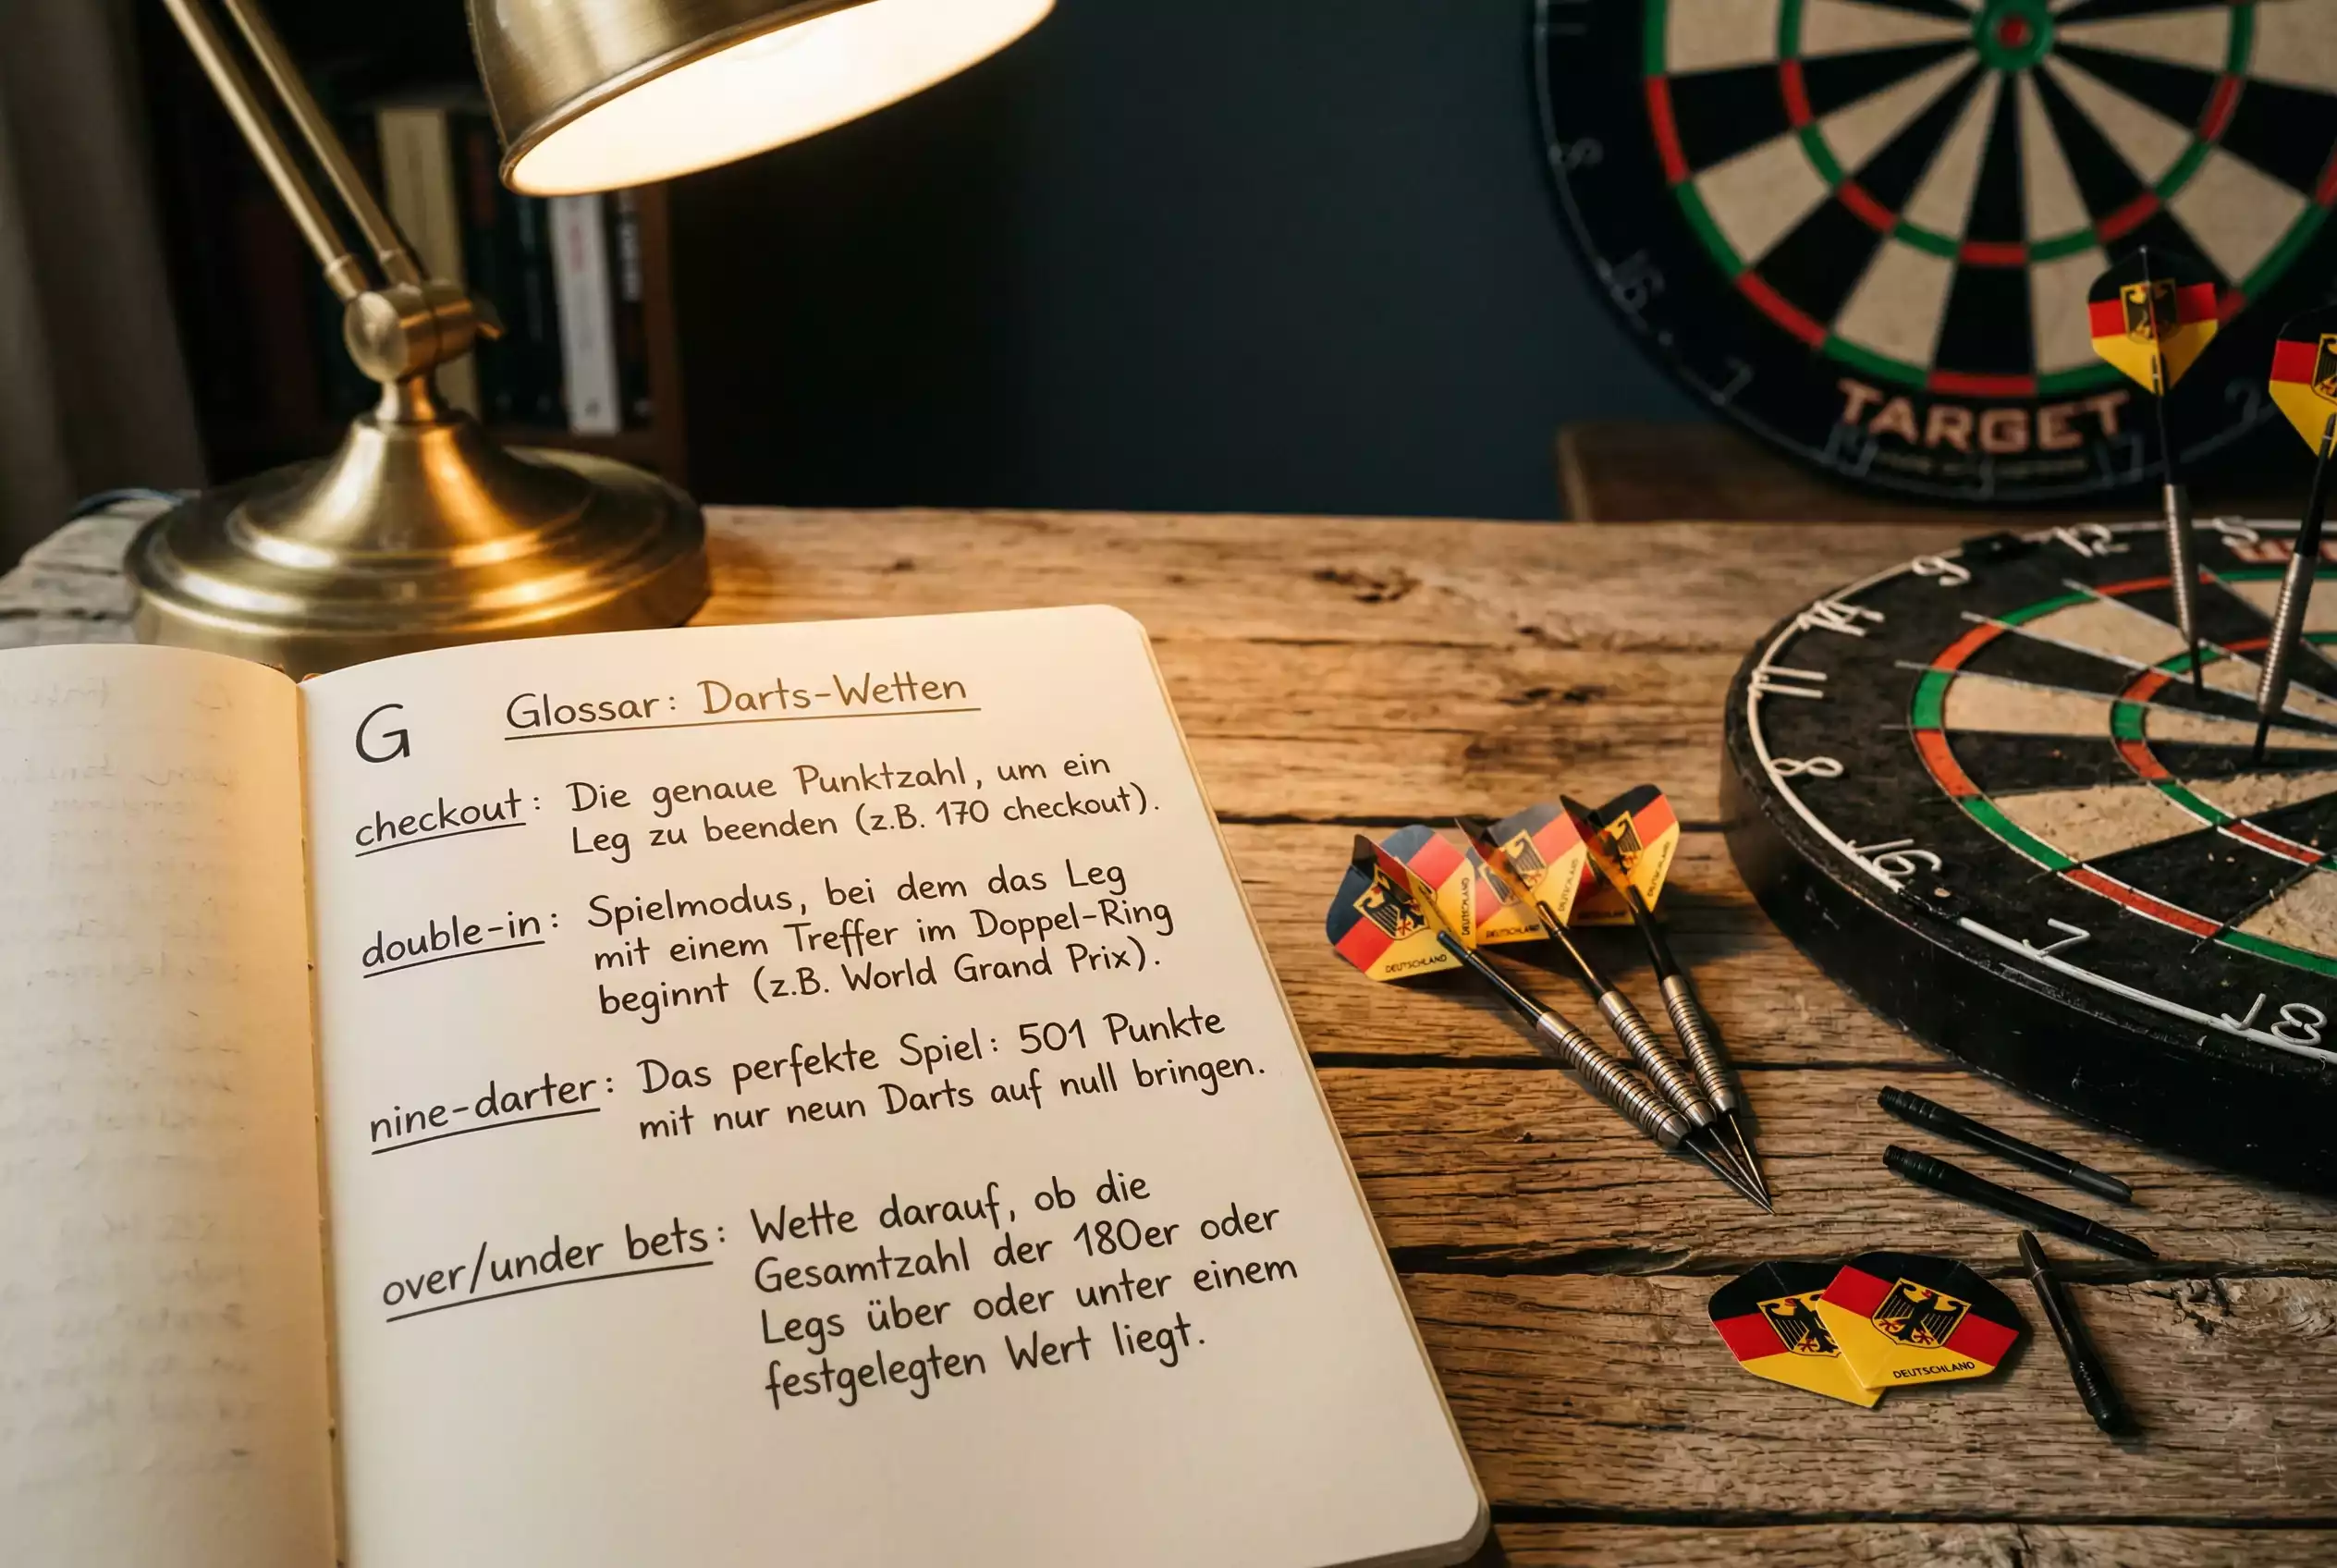 G
Glossar: Darts-Wetten
checkout: Die genaue Punktzahl, um ein
Leg zu beenden (z.B. 170 checkout).
double-in: Spielmodus, bei dem das Leg
mit einem Treffer im Doppel-Ring
beginnt (z.B. World Grand Prix).
nine-darter: Das perfekte Spiel: 501 Punkte
mit nur neun Darts auf null bringen.
over/under bets: Wette darauf, ob die
Gesamtzahl der 180er oder
Legs über oder unter einem
festgelegten Wert liegt.
TARGET
16
7
19
17
2
9
12
5
14
11
8
16
7
18
DEUTSCHLAND
DEUTSCHLAND
DEUTSCHLAND
DEUTSCHLAND